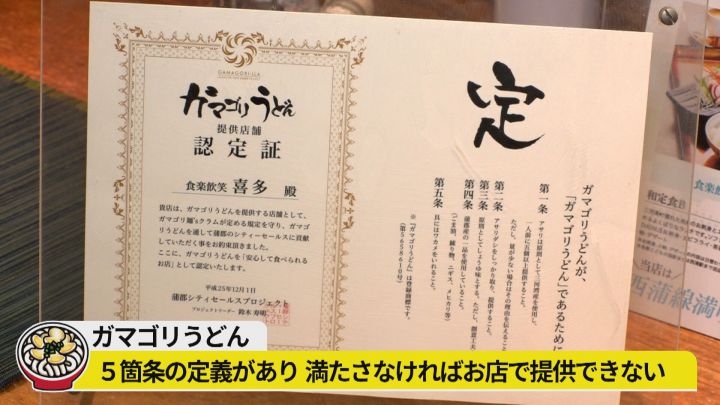 GAMAGORI-LLA
ガマゴリうどん
提供店舗
認定証
食楽飲笑 喜多 殿
貴店は、ガマゴリうどんを提供する店舗として、
ガマゴリ麺'sクラムが定める規定を守り、ガマゴ
リうどんを通して蒲郡のシティーセールスに貢献
していただく事をお約束頂きました。
ここに、ガマゴリうどんを「安心して食べられる
お店」として認定いたします。
平成25年12月1日
蒲郡シティセールスプロジェクト
プロジェクトリーダー 鈴木 寿明
定
ガマゴリうどんが、
「ガマゴリうどん」であるために
第一条 アサリは原則として三河湾産を使用し、
一人前に五個以上提供すること。
ただし、量が少ない場合はその理由を伝えること
第二条 アサリダシをしっかり取り、提供すること。
第三条 原則としてしょうゆ味とする。ただし、創意工夫
第四条 蒲郡産の一品を使用していること。
(ごま油、練り物、ニギス、メヒカリ等)
第五条 具にはワカメをいれること。
※「ガマゴリうどん」は登録商標です。
(第5658610号)
和定食
食楽
当店は
西浦線満
ガマゴリうどん
5箇条の定義があり 満たさなければお店で提供できない